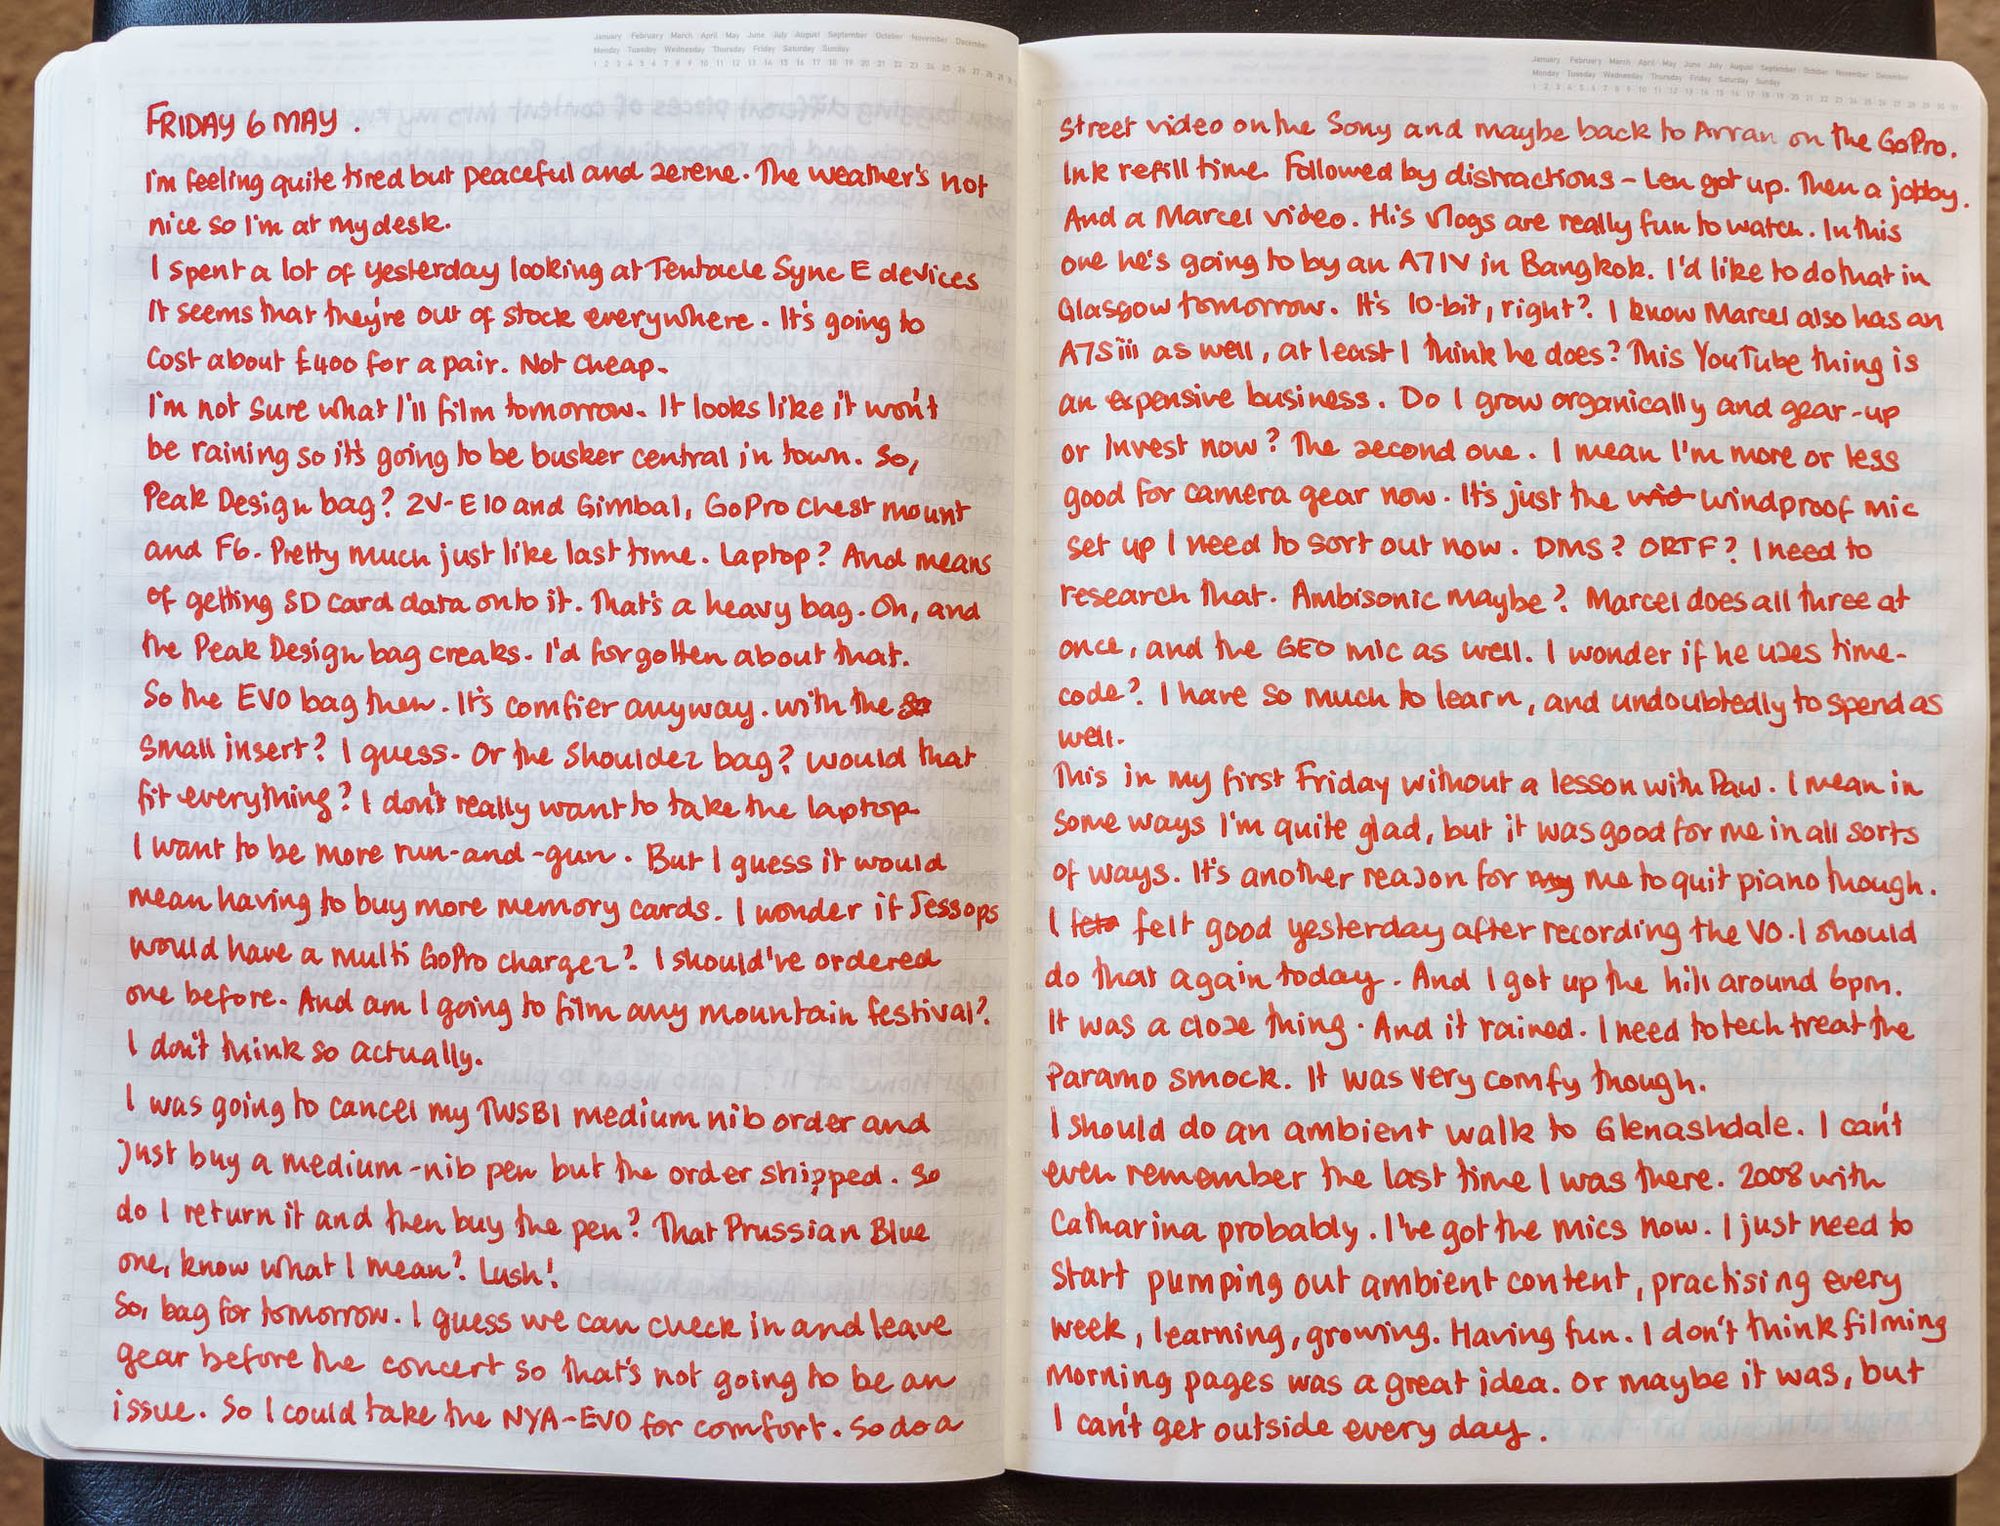 January February March April May June July August September October November December
Monday Tuesday Wednesday Thursday Friday Saturday Sunday
1 2 3 4 5 6 7 8 9 10 11 12 13 14 15 16 17 18 19 20 21 22 23 24 25 26 27 28 29 30 31
FRIDAY 6 MAY.
I'm feeling quite tired but peaceful and serene. The weather's not
nice so I'm at my desk.
I spent a lot of yesterday looking at Tentacle Sync E devices
It seems that they're out of stock everywhere. It's going to
cost about £400 for a pair. Not cheap.
I'm not sure what I'll film tomorrow. It looks like it won't
be raining so it's going to be busker central in town. So,
Peak Design bag? ZV-E10 and Gimbal, GoPro chest mount
and F6. Pretty much just like last time. Laptop? And means
of getting SD card data onto it. That's a heavy bag. Oh, and
the Peak Design bag creaks. I'd forgotten about that.
So the EVO bag then. It's comfier anyway. with the so
small insert? I guess. Or the shoulder bag? Would that
fit everything? I don't really want to take the laptop
I want to be more run-and-gun. But I guess it would
mean having to buy more memory cards. I wonder if Jessops
would have a multi GoPro charger? I should've ordered
one before. And am I going to film any mountain festival?
I don't think so actually.
I was going to cancel my TWSBI medium nib order and
just buy a medium-nib pen but the order shipped. So
do I return it and then buy the pen? That Prussian Blue
one, know what I mean? Lush!
So, bag for tomorrow. I guess we can check in and leave
gear before the concert so that's not going to be an
issue. So I could take the NYA-EVO for comfort. So do a
January February March April May June July August September October November December
Monday Tuesday Wednesday Thursday Friday Saturday Sunday
1 2 3 4 5 6 7 8 9 10 11 12 13 14 15 16 17 18 19 20 21 22 23 24 25 26 27 28 29 30 31
street video on the Sony and maybe back to Arran on the GoPro.
Ink refill time. Followed by distractions - Len got up. Then a jobby.
And a Marcel video. His vlogs are really fun to watch. In this
one he's going to by an A7IV in Bangkok. I'd like to do that in
Glasgow tomorrow. It's 10-bit, right? I know Marcel also has an
A7Siii as well, at least I think he does? This YouTube thing is
an expensive business. Do I grow organically and gear-up
or invest now? The second one. I mean I'm more or less
good for camera gear now. It's just the wid windproof mic
set up I need to sort out now. DMS? ORTF? I need to
research that. Ambisonic maybe? Marcel does all three at
once, and the GEO mic as well. I wonder if he uses time-
code? I have so much to learn, and undoubtedly to spend as
well.
This in my first Friday without a lesson with Paw. I mean in
some ways I'm quite glad, but it was good for me in all sorts
of ways. It's another reason for my me to quit piano though.
I felt good yesterday after recording the VO. I should
do that again today. And I got up the hill around 6pm.
It was a close thing. And it rained. I need to tech treat the
Paramo smock. It was very comfy though.
I should do an ambient walk to Glenashdale. I can't
even remember the last time I was there. 2008 with
Catharina probably. I've got the mics now. I just need to
start pumping out ambient content, practising every
week, learning, growing. Having fun. I don't think filming
morning pages was a great idea. Or maybe it was, but
I can't get outside every day.